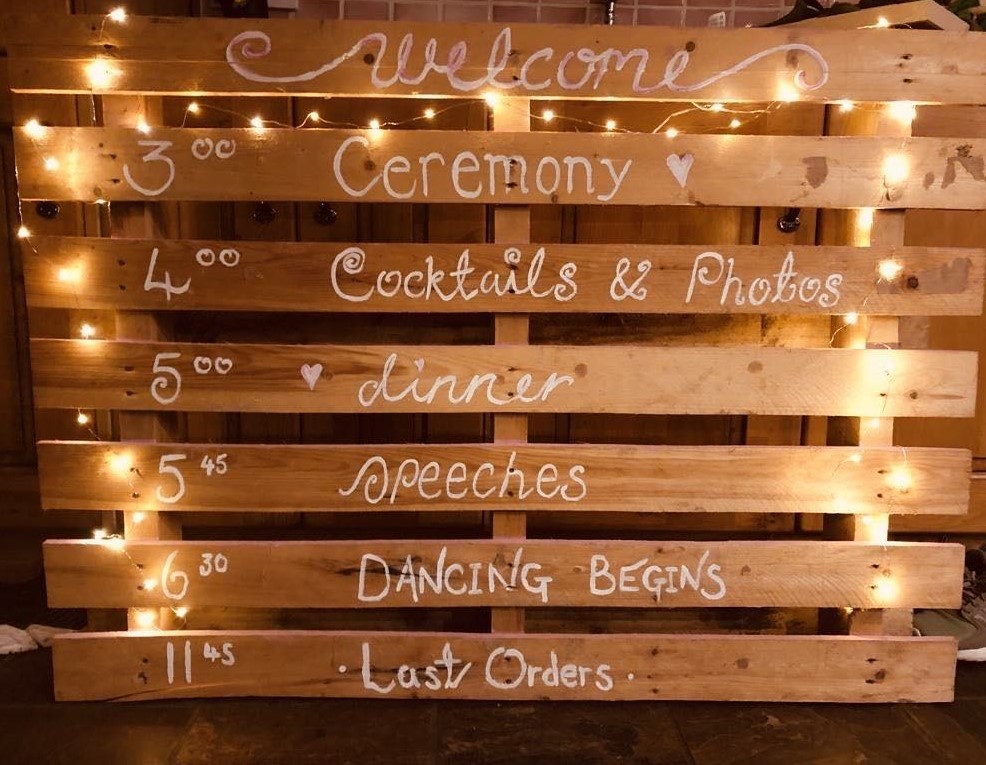 welcome
3 00 Ceremony ♥
4 00 Cocktails & Photos
5 00 ♥ dinner
5 45 Speeches
6 30 DANCING BEGINS
11 45 · Last Orders ·